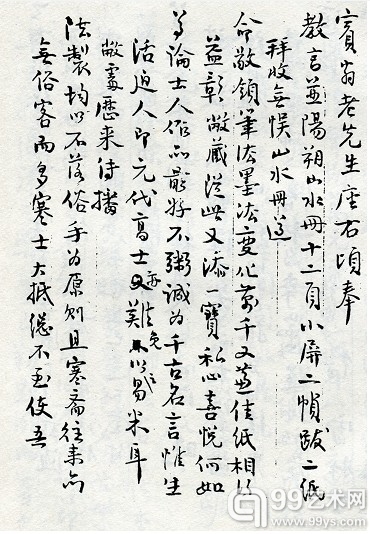 賓翁老先生座右頃奉
教言並陽朔山水冊十二頁小屏二幀跋二紙
拜收無悞山水冊
命敬領筆法墨法變化萬千又益佳紙相得
益彰敝藏從此又添一寶私心喜悅何如
論士人作品最好不鬻誠為千古名言惟生
活迫人即元代高士亦難免以易米耳
敝處歷來待播
法製均以不落俗手為原則且寒齋往來亦
無俗客而多寒士大抵總不至使吾
99艺术网
www.99ys.com